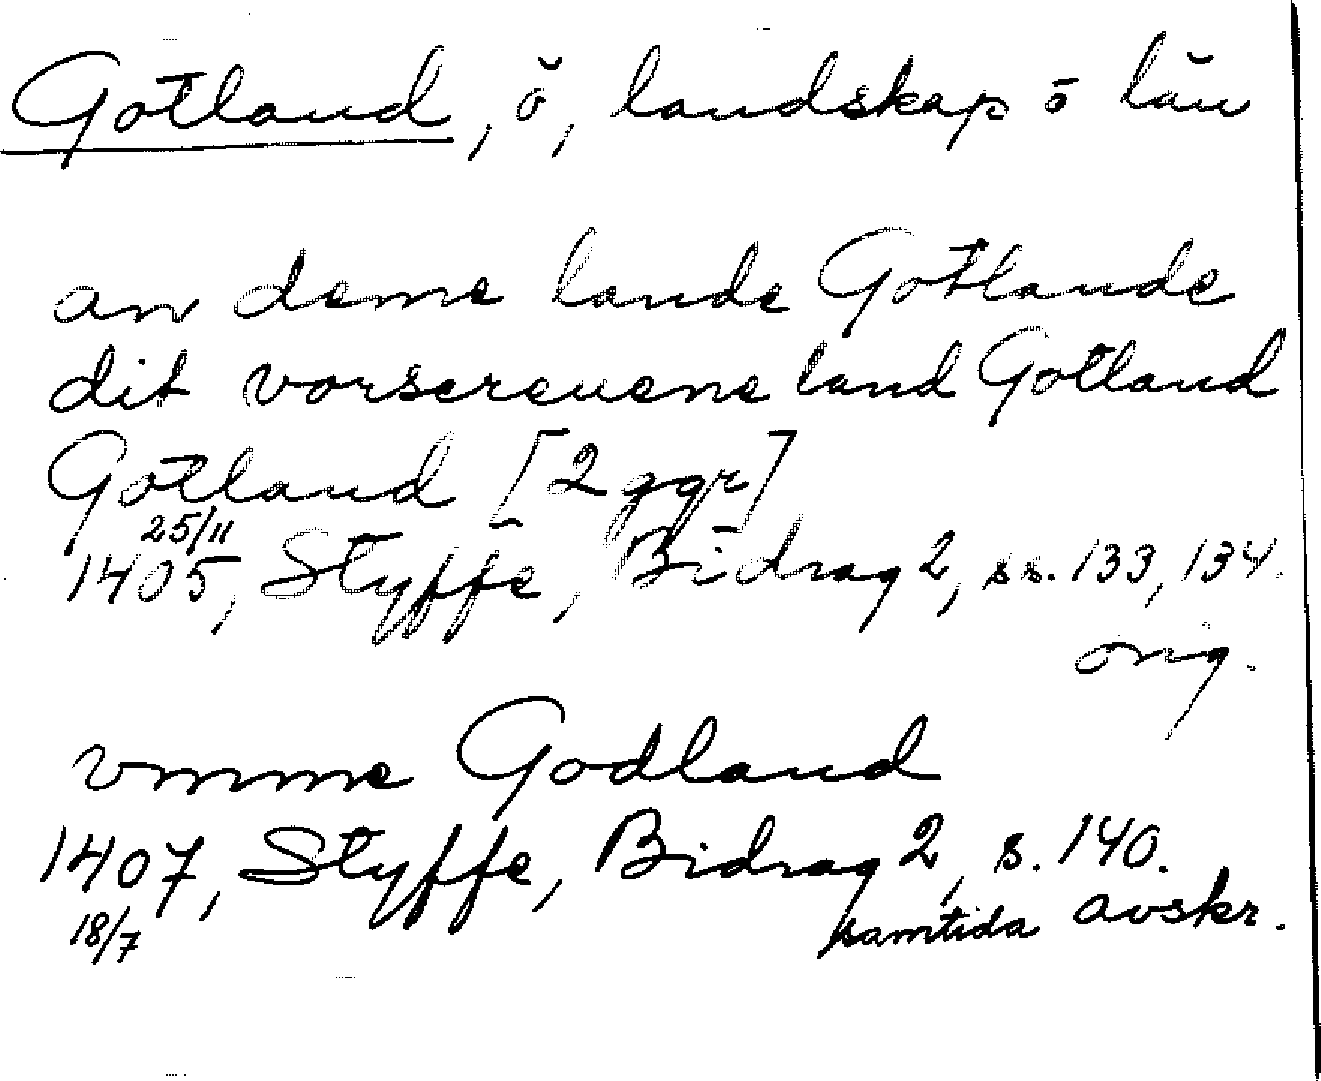 Gotland, ö, landskap o län
an deme lande Gotlande
dit vorscreuene land Gotland
Gotland [2 ggr]
25/11
1405, Styffe, Bidrag 2, ss. 133, 134.
orig.
vmme Godland
1407, Styffe, Bidrag 2, s. 140.
18/7 samtida avskr.